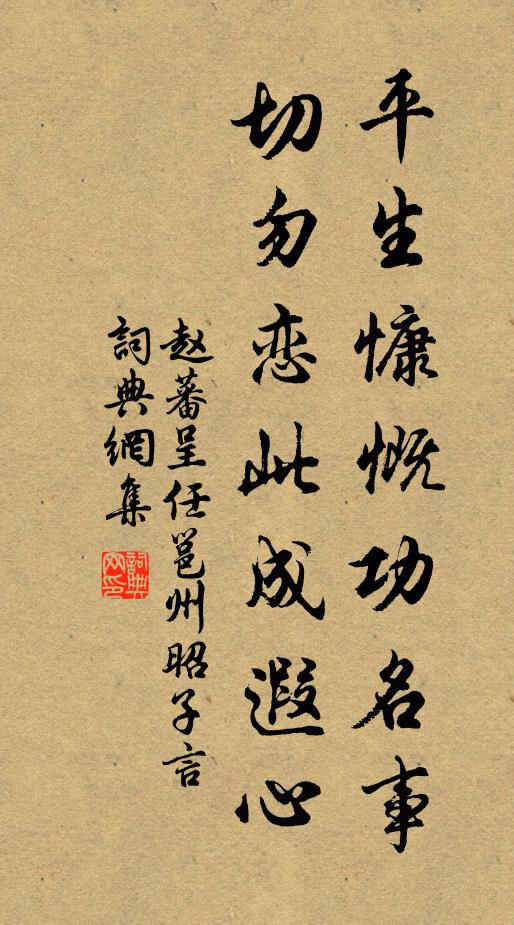 平生慷慨功名事
切勿恋此成遐心
赵蕃呈任邕州昭子言
詞典網集
詞典网印